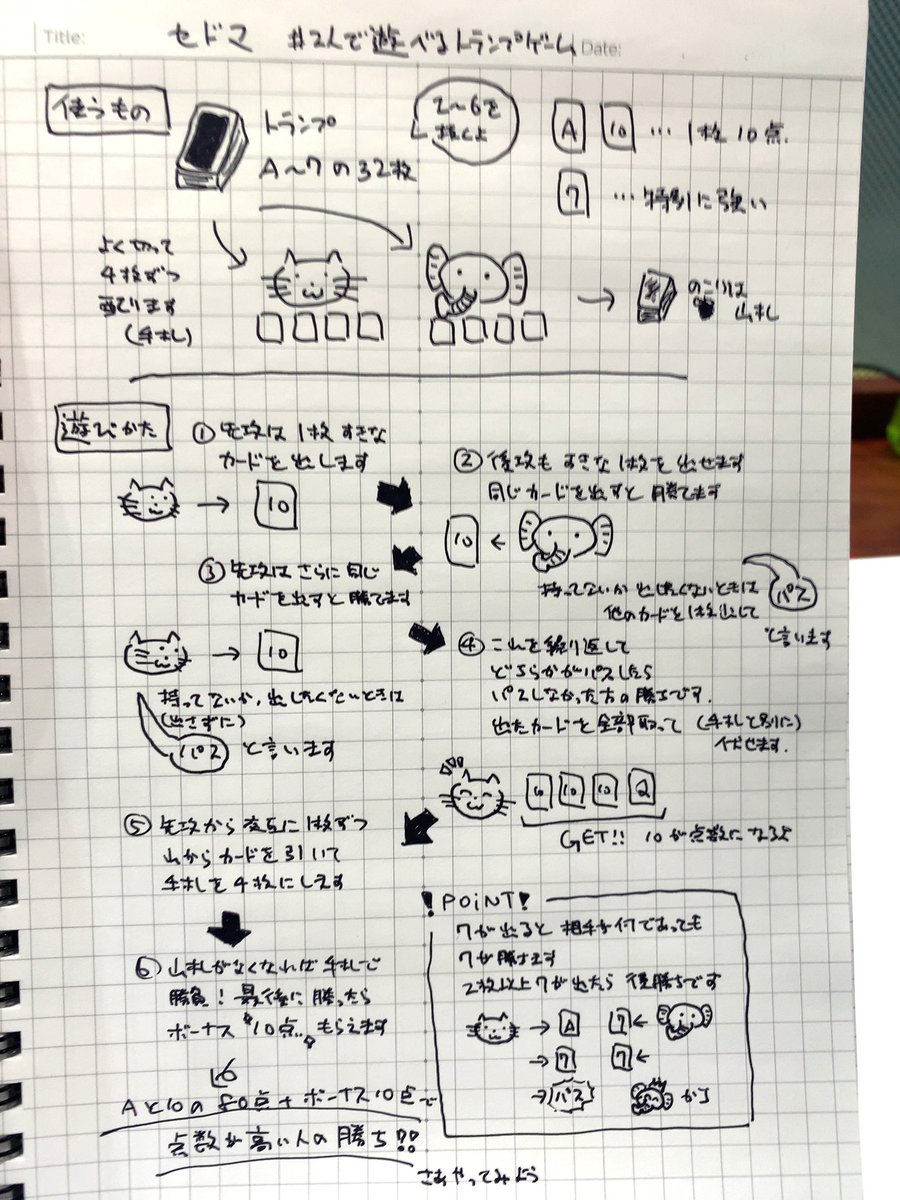 Title: セドマ #2人で遊べるトランプゲーム Date:
使うもの
トランプ
A〜7の32枚
2〜6を
抜くよ
A 10 … 1枚10点.
7 … 特別に強い
よく切って
4枚ずつ
配ります
(手札)
のこりは
山札
遊びかた
① 先攻は1枚すきな
カードを出します
10
② 後攻もすきな1枚を出せます
同じカードを出すと勝てます
10
持ってないか出したくないときは
他のカードを1枚出して
パス
と言います
③ 先攻はさらに同じ
カードを出すと勝てます
10
持ってないか、出したくないときは
(出さずに)
パス と言います
④ これを繰り返して
どちらかがパスしたら
パスしなかった方の勝ちです.
出たカードを全部取って (手札と別に)
伏せます.
10 10 10 2
GET!! 10が点数になるよ
⑤ 先攻から交互に1枚ずつ
山からカードを引いて
手札を4枚にします
⑥ 山札がなくなれば手札で
勝負! 最後に勝ったら
ボーナス "10点" もらえます
Aと10の80点+ボーナス10点で
点数が高い人の勝ち!!
さあやってみよう
!POiNT!
7が出ると相手が何であっても
7が勝ちます
2枚以上7が出たら後勝ちです
A 7
7 7
パス かつ